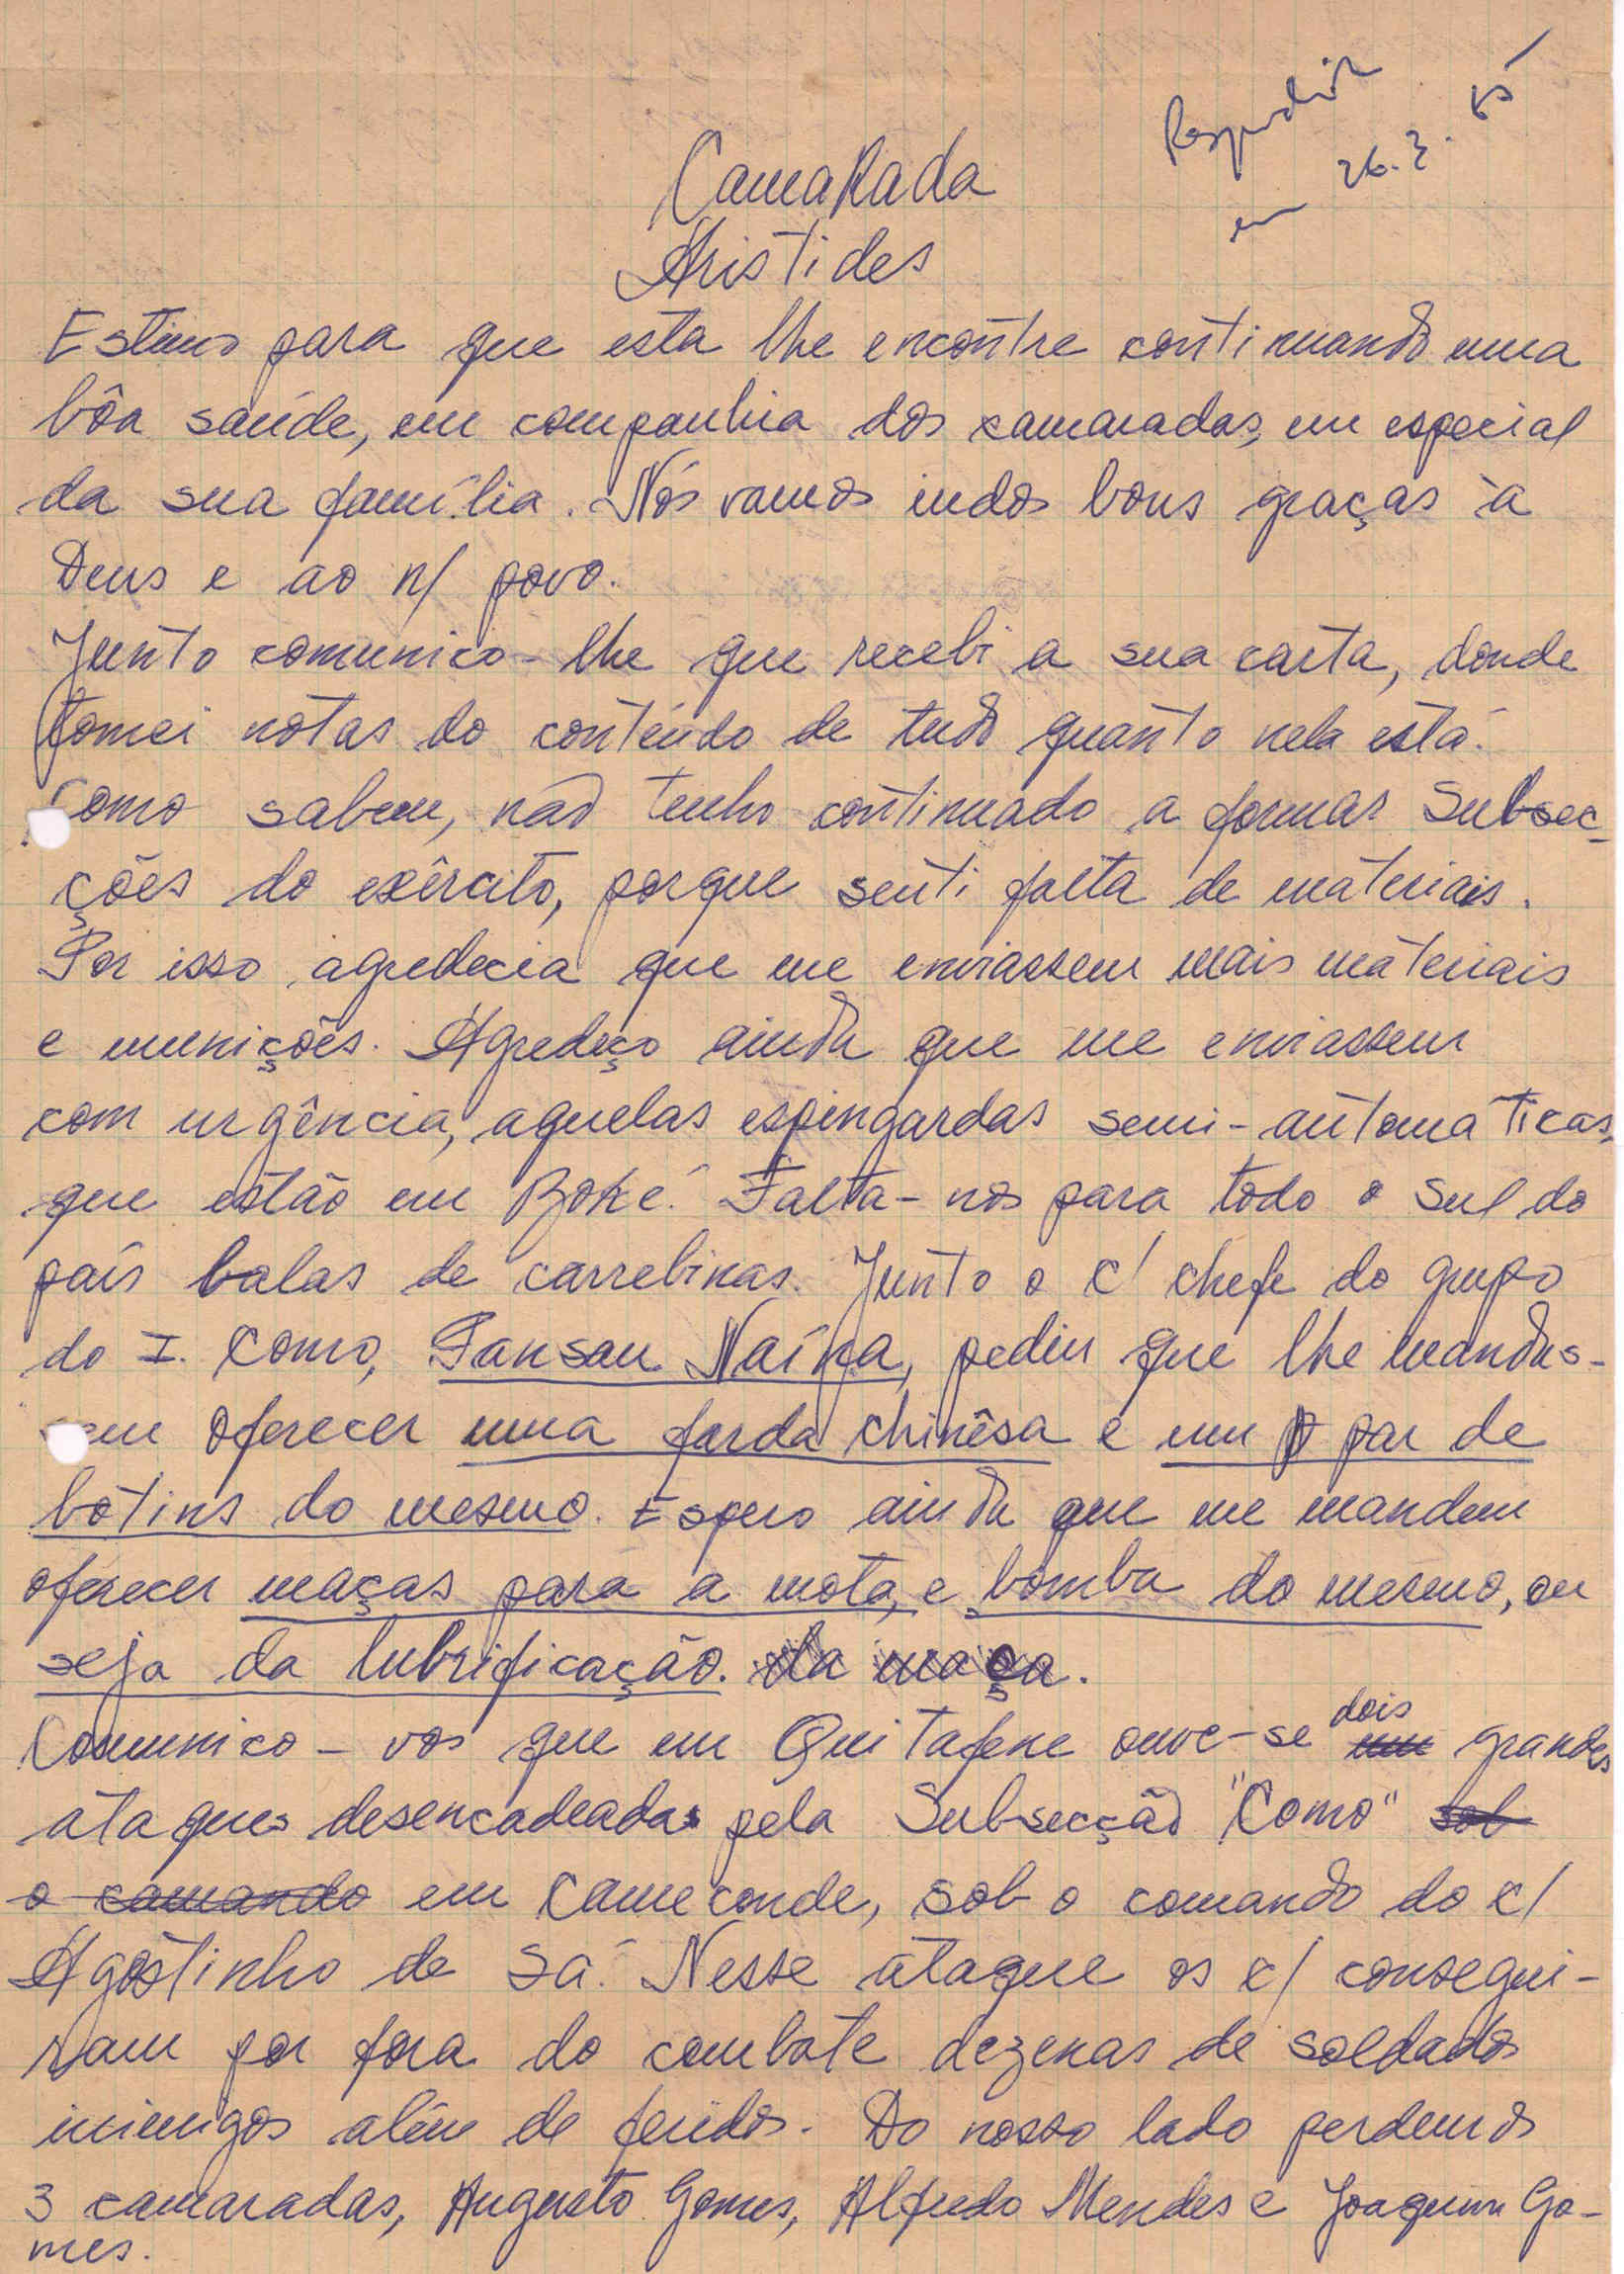 Respondido
em 26.3.65
Camarada
Aristides
Estimo para que esta lhe encontre continuando uma
bôa saúde, em companhia dos camaradas, em especial
da sua família. Nós vamos indos bons graças à
Deus e ao n/ povo.
Junto comunico-lhe que recebi a sua carta, donde
tomei notas do conteúdo de tudo quanto nela está.
Como sabem, não tenho continuado a formar Subsec-
ções do exército, porque senti falta de materiais.
Por isso agredecia que me enviassem mais materiais
e munições. Agredeço ainda que me enviassem
com urgência, aquelas espingardas semi-automáticas,
que estão em Boké. Falta-nos para todo o Sul do
país balas de carrebinas. Junto o c/ chefe do grupo
do I. Como, Pansau Naína, pediu que lhe mandas-
sem oferecer uma farda chinêsa e um par de
botins do mesmo. Espero ainda que me mandem
oferecer maças para a mota, e bomba do mesmo, ou
seja da lubrificação. da maça.
Comunico-vos que em Quitafene ouve-se um dois grandes
ataques desencadeadas pela Subsecção "Como" sob
o camando em Cameconde, sob o comando do c/
Agostinho de Sá. Nesse ataque os c/ consegui-
ram por fora do combate dezenas de soldados
inimigos além de feridos. Do nosso lado perdemos
3 camaradas, Augusto Gomes, Alfredo Mendes e Joaquim Go-
mes.